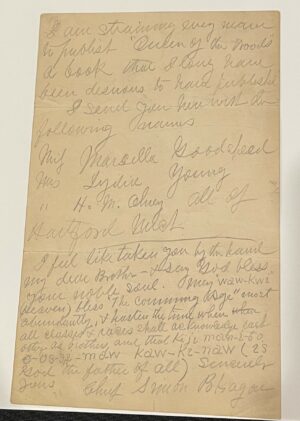 I am straining every nerve
to publish "Queen of the Woods
a book that I long have
been desirous to have published
I send you here with the
following names
Mrs Marsella Goodspeed
Mrs Lydia Young
" H. M. Olney all of
Hartford Mich
I feel like taken you by the hand
my dear Brother & say God bless
your noble soul. May waw-kwi
(heaven) bless "The Comming Age" most
abundantly, & hasten the time when
all clauses & races shall acknowledge each
other as brothers, and that
maw kaw-ki-naw (is
God the father of all) Sincerely
yours Chief Simon Pokagon